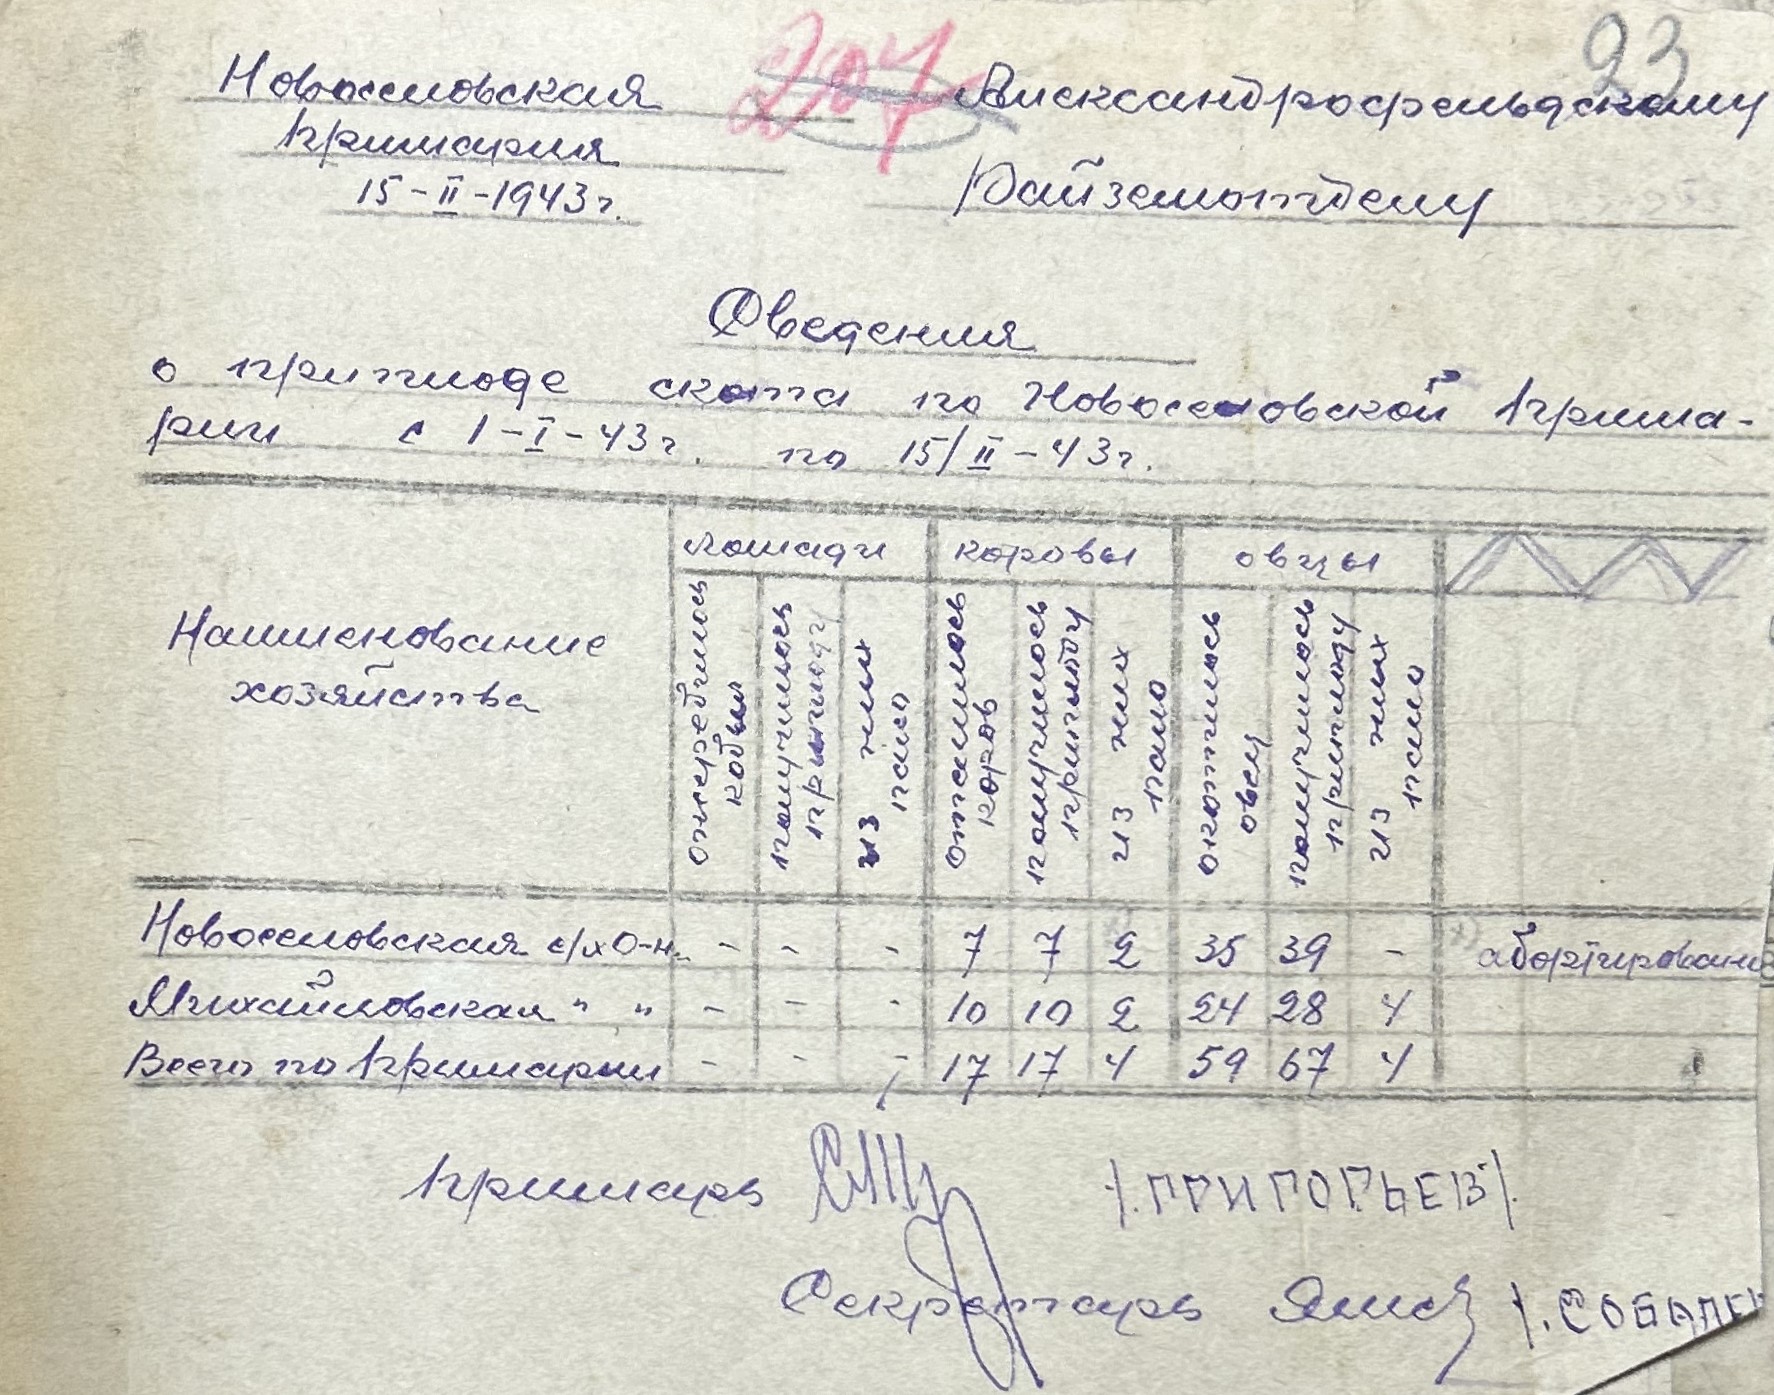 207
93
Новоселовская
Примария
15-II-1943г.
Александрофельдскому
Райземотделу
Сведения
о приплоде скота по Новоселовской Прима-
рии с 1-I-43г. по 15/II-43г.
Наименование хозяйства
лошади коровы овцы
ожеребилось кобыл
получилось приплоду
из них пало
отелилось коров
получилось приплоду
из них пало
окотилось овец
получилось приплоду
из них пало
Новоселовская с/х О-н. - - - 7 7 2 35 39 - абортирован
Михайловская " " - - - 10 10 2 24 28 4
Всего по Примарии - - - 17 17 4 59 67 4
Примарь /.ГРИГОРЬЕВ/.
Секретарь /.СОБАЛЕ